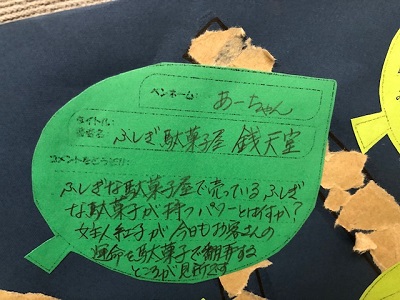 ペンネーム: あーちゃん
タイトル:
ふしぎ駄菓子屋 銭天堂
コメントをどうぞ!!
ふしぎな駄菓子屋で売っているふしぎ
な駄菓子が持つパワーとはすか?
女主人紅子が今日もお客さんの
運命を駄菓子で翻弄する
ところが見所です